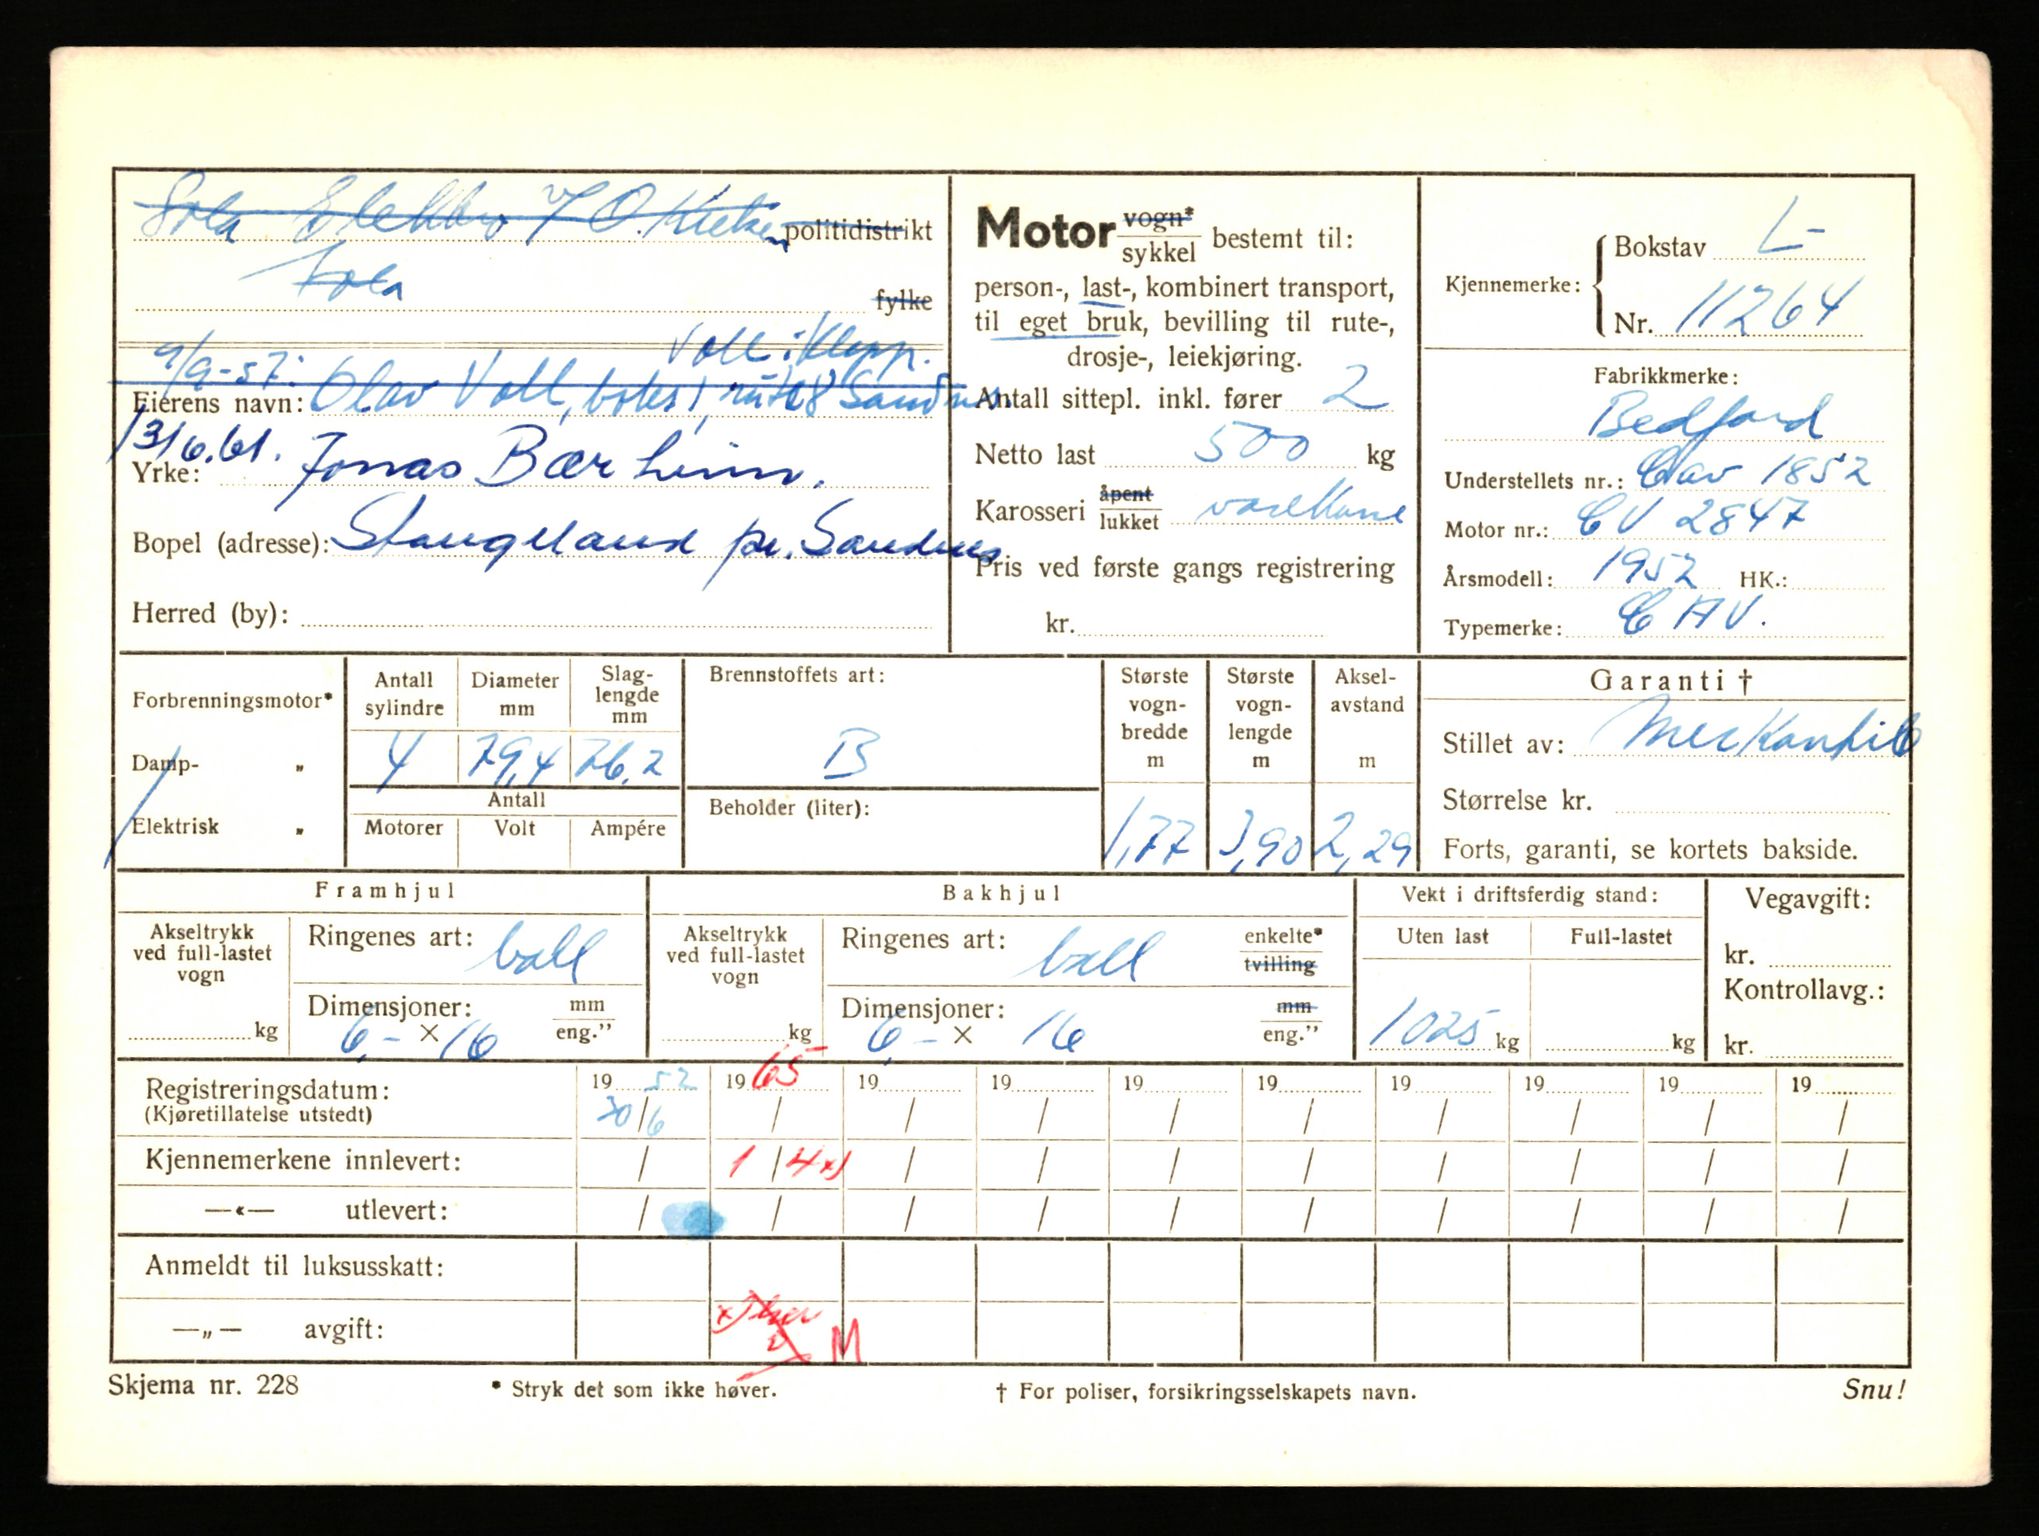 Sola Elektro v/ O. politidistrikt
Sola fylke
9/9-57: Voll i Klepp.
Eierens navn: Olav Voll, boks 1, rute 8 Sandnes.
13/6.61. Jonas Bærheim.
Yrke:
Bopel (adresse): Stangeland pr. Sandnes
Herred (by):
Motor vogn* sykkel bestemt til:
person-, last-, kombinert transport,
til eget bruk, bevilling til rute-,
drosje-, leiekjøring.
Antall sittepl. inkl. fører 2
Netto last 500 kg
Karosseri åpent lukket varekasse
Pris ved første gangs registrering
kr.
Kjennemerke: Bokstav L-
Nr. 11264
Fabrikkmerke:
Bedford
Understellets nr.: Cav 1852
Motor nr.: CV 2847
Årsmodell: 1952 HK.:
Typemerke: CAV.
Forbrenningsmotor*
Damp- „
Elektrisk „
Antall sylindre Diameter mm Slaglengde mm
4 79,4 76,2
Antall
Motorer Volt Ampére
Brennstoffets art:
B
Beholder (liter):
Største vogn-bredde m Største vogn-lengde m Aksel-avstand m
1,77 3,90 2,29
Garanti †
Stillet av: Merkantile
Størrelse kr.
Forts, garanti, se kortets bakside.
Framhjul
Akseltrykk ved full-lastet vogn kg
Ringenes art: ball
Dimensjoner: mm eng.”
6,- × 16
Bakhjul
Akseltrykk ved full-lastet vogn kg
Ringenes art: ball enkelte* tvilling
Dimensjoner: mm eng.”
6,- × 16
Vekt i driftsferdig stand:
Uten last Full-lastet
1025 kg kg
Vegavgift:
kr.
Kontrollavg.:
kr.
Registreringsdatum: 19 52 19 65 19 19 19 19 19 19 19 19
(Kjøretillatelse utstedt) 30/6 / / / / / / / / /
Kjennemerkene innlevert: / 1/4 x) / / / / / / / /
—«— utlevert: / / / / / / / / / /
Anmeldt til luksusskatt:
—„— avgift: M
Skjema nr. 228 * Stryk det som ikke høver. † For poliser, forsikringsselskapets navn. Snu!